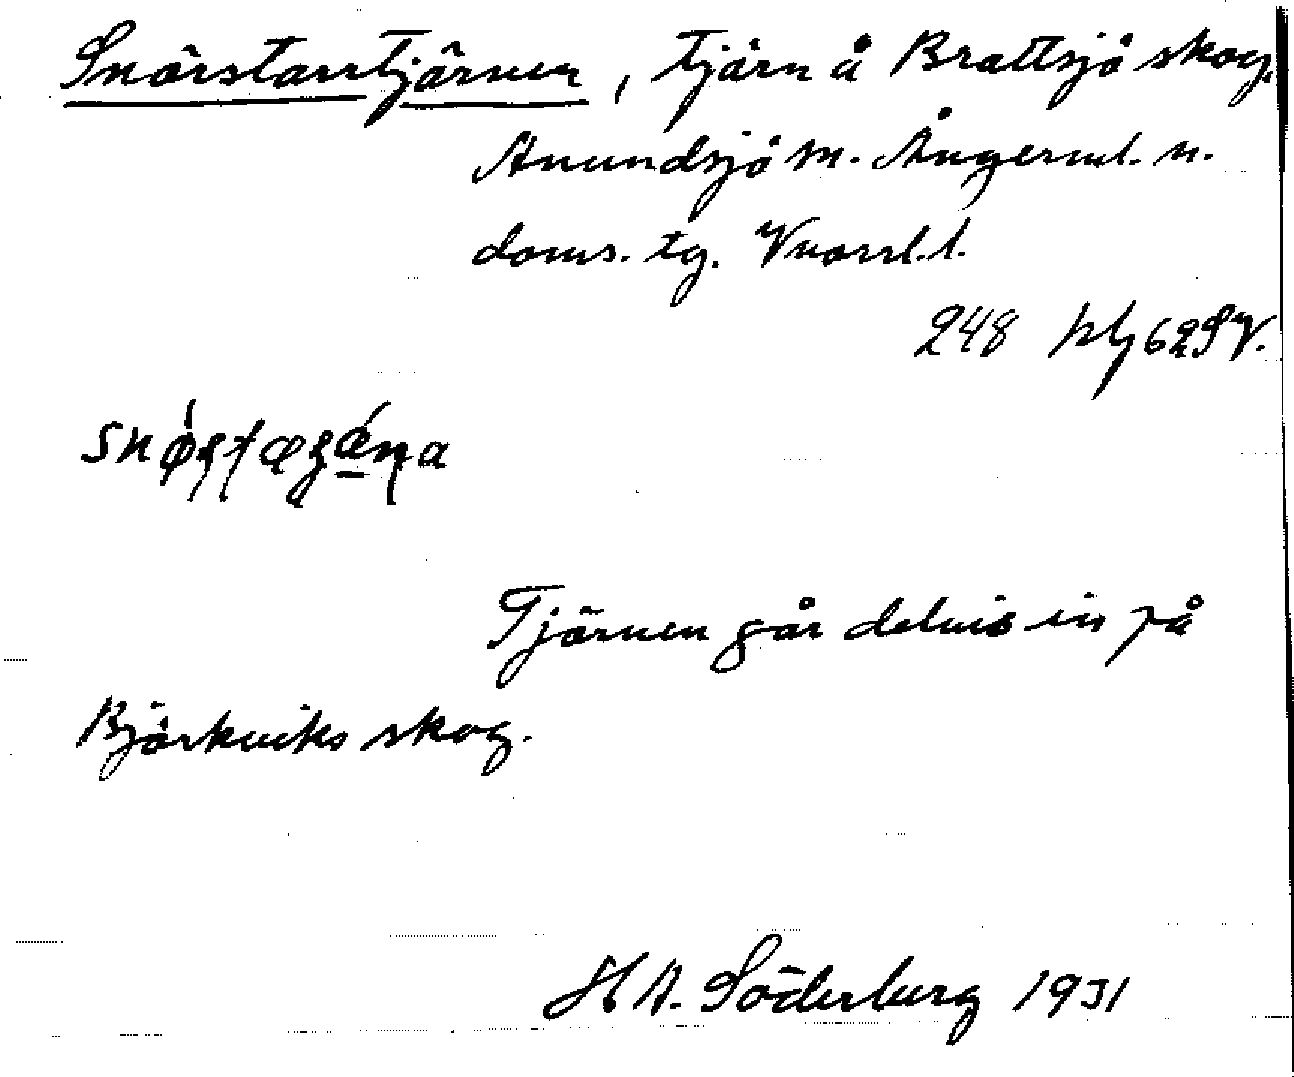 Snörstarrtjärnen, tjärn å Brattsjö skog,
Anundsjö sn. Ångerml. n.
doms. tg. Vnorrl. l.
248 blg 62SV.
Tjärnen går delvis in på
Björkviks skog.
H A. Söderberg 1931